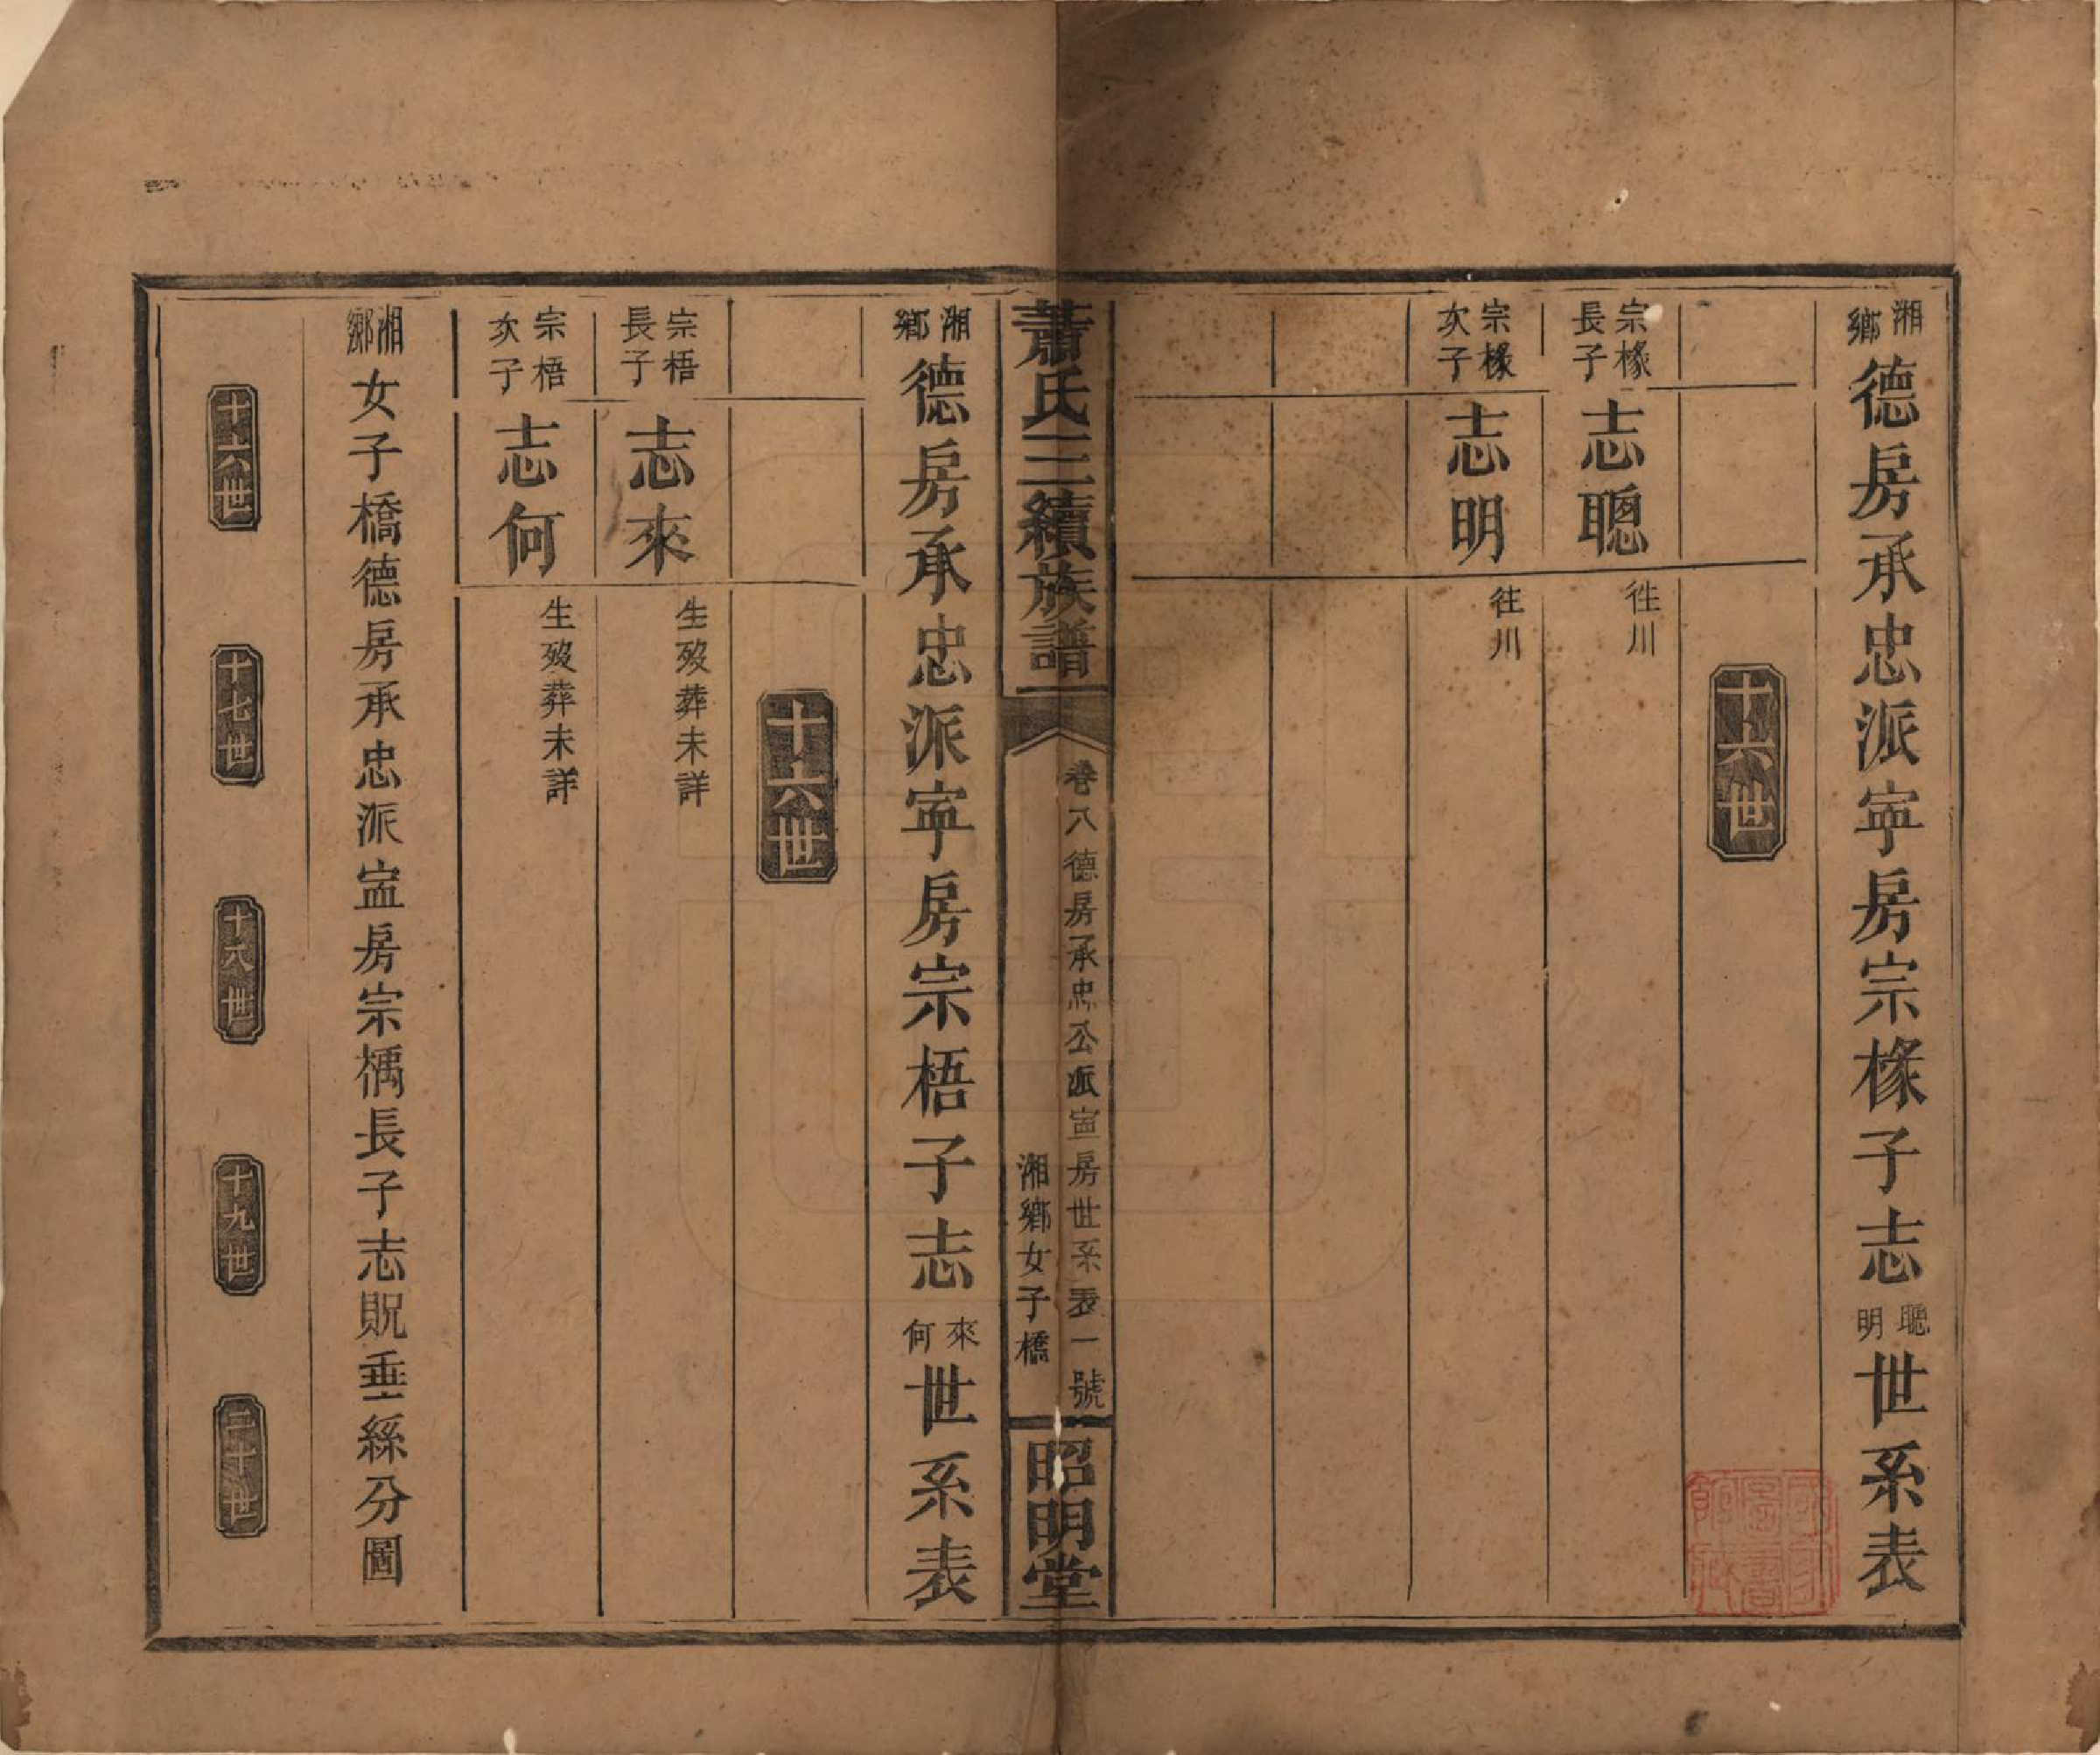 湘鄉德房承忠派寕房宗椽子志聰明世系表
十六世
宗椽長子
志聰
徃川
宗椽次子
志明
徃川
蕭氏三續族譜
卷八德房承忠公派寍房世系表一號
湘鄉女子橋
昭明堂
湘鄉德房承忠派寕房宗梧子志來何世系表
十六世
宗梧長子
志來
生歿葬未詳
宗梧次子
志何
生歿葬未詳
湘鄉女子橋德房承忠派寍房宗楀長子志貺垂絲分圖
十六世
十七世
十八世
十九世
二十世